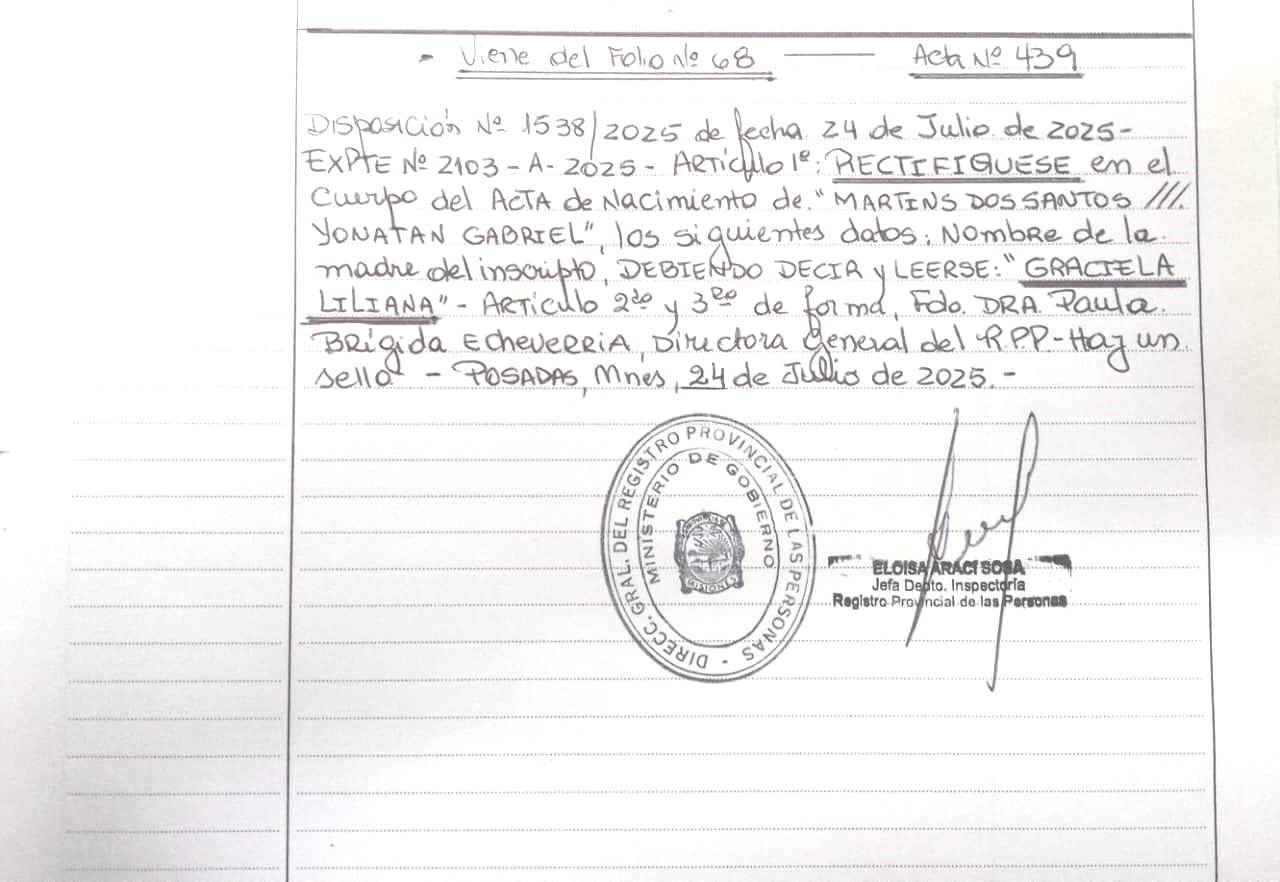 - Viene del Folio Nº 68 — Acta Nº 439
Disposición Nº 1538/2025 de fecha 24 de Julio de 2025-
EXPTE Nº 2103-A-2025- ARTículo 1º: RECTIFIQUESE en el
Cuerpo del ACTA de Nacimiento de "MARTINS DOS SANTOS ///.
YONATAN GABRIEL", los siguientes datos: Nombre de la
madre del inscripto, DEBIENDO DECIR y LEERSE: "GRACIELA
LILIANA"- ARTículo 2do y 3ro de forma, Fdo. DRA. Paula
Brígida ECHEVERRIA, Directora General del R.P.P-Hay un
sello - POSADAS, Mnes, 24 de Julio de 2025.-
DIRECC. GRAL. DEL REGISTRO PROVINCIAL DE LAS PERSONAS
MINISTERIO DE GOBIERNO
MISIONES
ELOISA ARACI SOSA
Jefa Depto. Inspectoría
Registro Provincial de las Personas